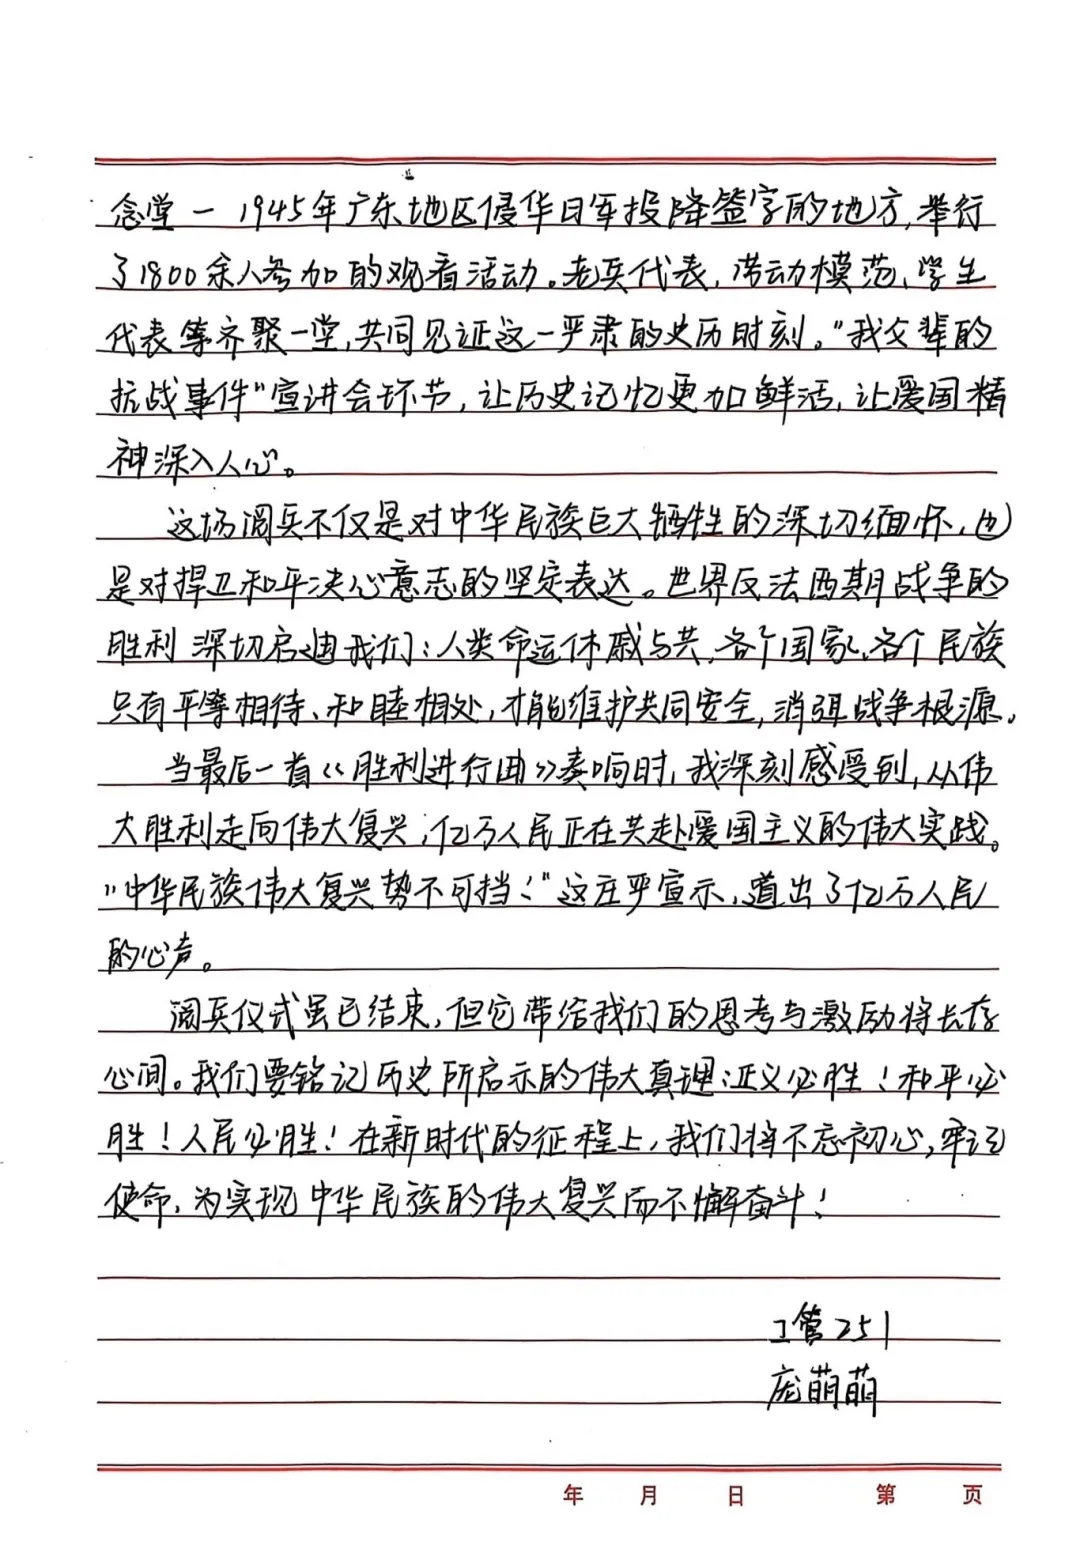 念堂一1945年广东地区侵华日军投降签字的地方,举行
了1800余人参加的观看活动。老兵代表,劳动模范、学生
代表等齐聚一堂,共同见证这一严肃的史历时刻。"我父辈的
抗战事件"宣讲会环节,让历史记忆更加鲜活,让爱国精
神深入人心。
这场阅兵不仅是对中华民族巨大牺牲的深切缅怀,也
是对捍卫和平决心意志的坚定表达。世界反法西期战争的
胜利深切启迪我们:人类命运休戚与共,各个国家、各个民族
只有平等相待、和睦相处,才能维护共同安全,消弭战争根源。
当最后一首《胜利进行曲》奏响时,我深刻感受到,从伟
大胜利走向伟大复兴,亿万人民正在共赴爱国主义的伟大实践。
"中华民族伟大复兴势不可挡!"这庄严宣示,道出了亿万人民
的心声。
阅兵仪式虽已结束,但它带给我们的思考与激励将长存
心间。我们要铭记历史所启示的伟大真理:正义必胜!和平必
胜!人民必胜!在新时代的征程上,我们将不忘初心,牢记
使命,为实现中华民族的伟大复兴而不懈奋斗!
工管251
庞萌萌
年 月 日 第 页